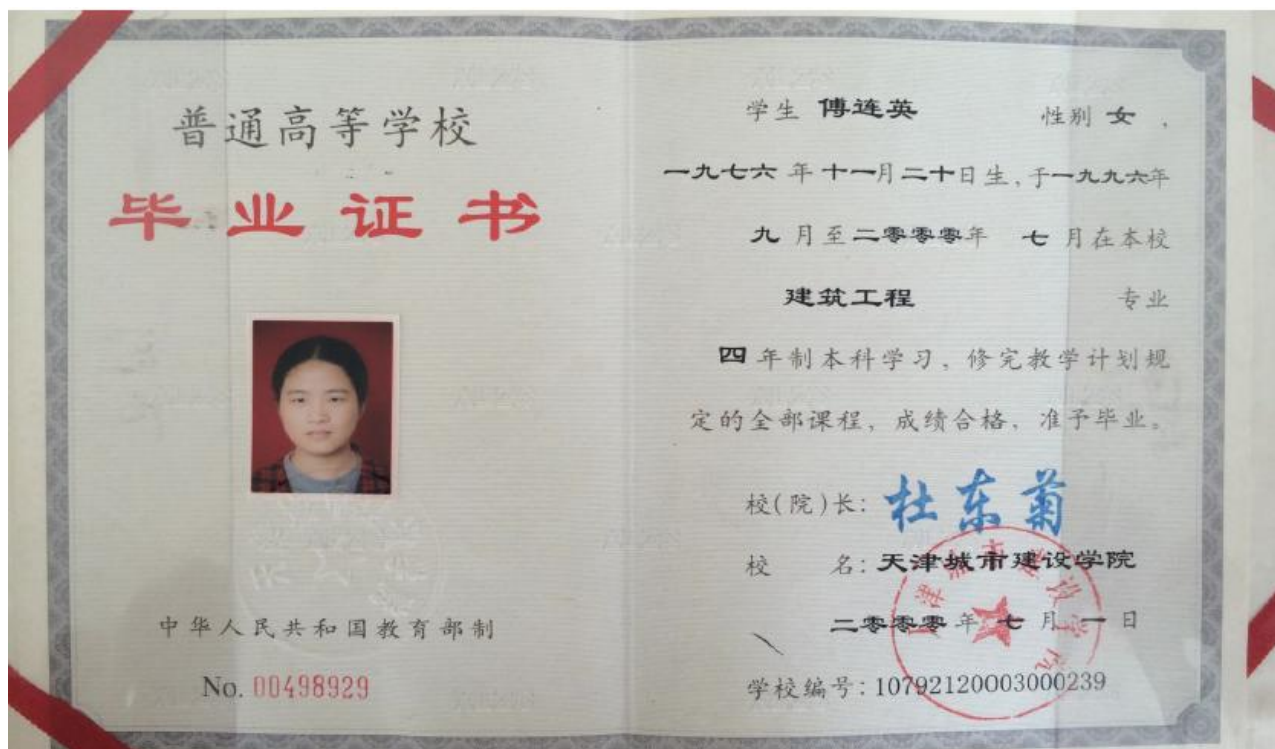 普通高等学校
毕业证书
中华人民共和国教育部制
No. 00498929
学生 傅连英 性别 女，
一九七六年十一月二十日生，于一九九六年
九月至二零零零年 七月在本校
建筑工程 专业
四年制本科学习，修完教学计划规
定的全部课程，成绩合格，准予毕业。
校(院)长：杜东菊
校 名：天津城市建设学院
二零零零年七月一日
学校编号：10792120003000239
天津城市建设学院